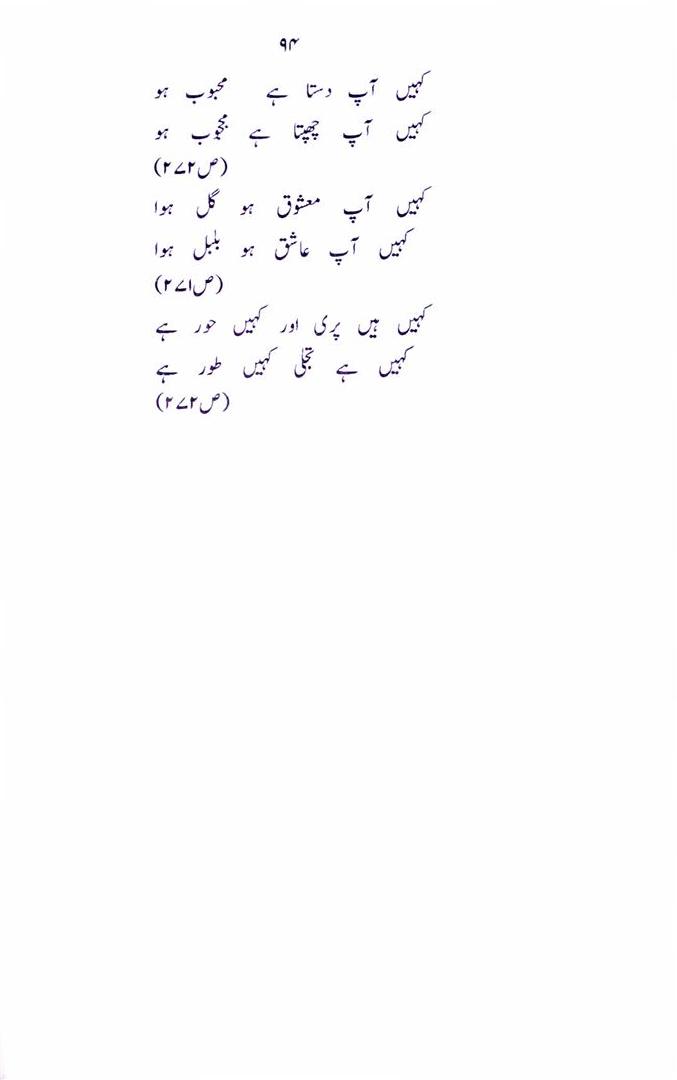 ۹۴
کہیں آپ دستا ہے محبوب ہو
کہیں آپ چھپتا ہے مجحوب ہو
(ص۲۷۲)
کہیں آپ معشوق ہو گل ہوا
کہیں آپ عاشق ہو بلبل ہوا
(ص۲۷۱)
کہیں ہیں پری اور کہیں حور ہے
کہیں ہے تجلی کہیں طور ہے
(ص۲۷۲)